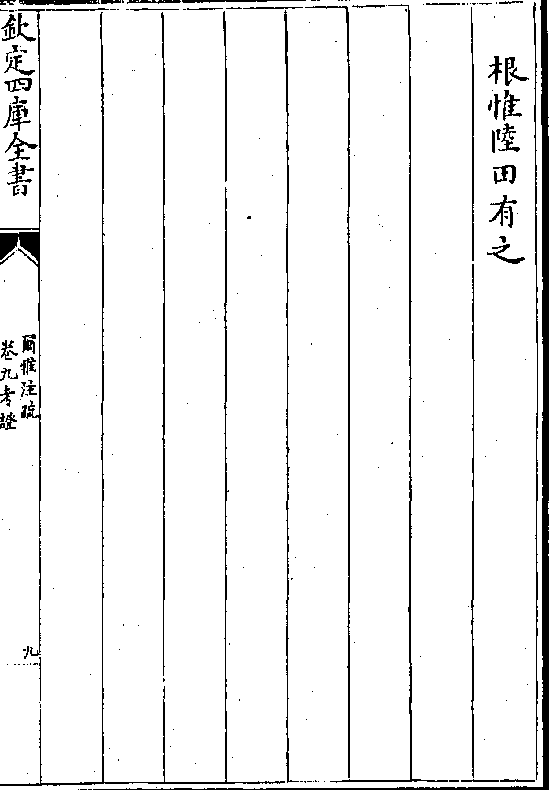 根惟陸田有之
欽定四庫全書
爾雅注疏
卷九考證
九